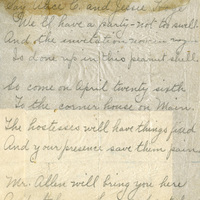 Say Alice C. and Jessie
We'll have a party - not too swell
And the invitation
Is done up in this peanut shell.
So come on April twenty sixth
To the corner house on Main.
The hostesses will have things fixed
And your presence save them pain
Mr. Allen will bring you here